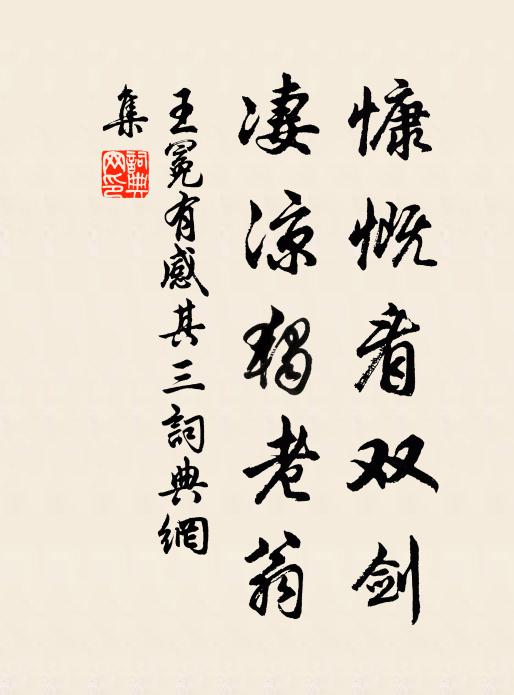 慷慨看双剑
凄涼独老翁
王冕有感其三詞典網
集
詞典
网印